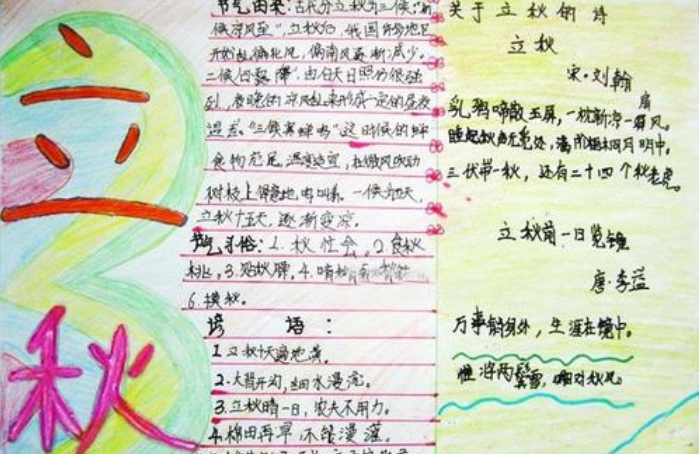 立
秋
节气由来:古代分立秋为三候:"初
候凉风至",立秋后,我国许多地区
开始刮偏北风,偏南风逐渐减少。
二候白露降,由白天日照仍很强
烈,夜晚的凉风刮来形成一定的昼夜
温差。"三候寒蝉鸣"这时候的蝉
食物充足,温度适宜,在微风吹动
树枝上得意地鸣叫着。一候为五天,
立秋十五天,逐渐变凉。
节气习俗:1.秋社会,2.食秋
桃,3.贴秋膘,4.啃秋
6.摸秋。
谚语:
1.立秋十天遍地黄。
2.大背开沟,细水漫浇。
3.立秋晴一日,农夫不用力。
4.棉田再旱不能漫灌。
关于立秋的诗
立秋
宋·刘翰
乳鸦啼散玉屏,一枕新凉一扇风。
睡起秋声无觅处,满阶梧桐月明中。
三伏带一秋,还有二十四个秋老虎。
立秋前一日览镜
唐·李益
万事销身外,生涯在镜中。
惟将两鬓雪,明日对秋风。